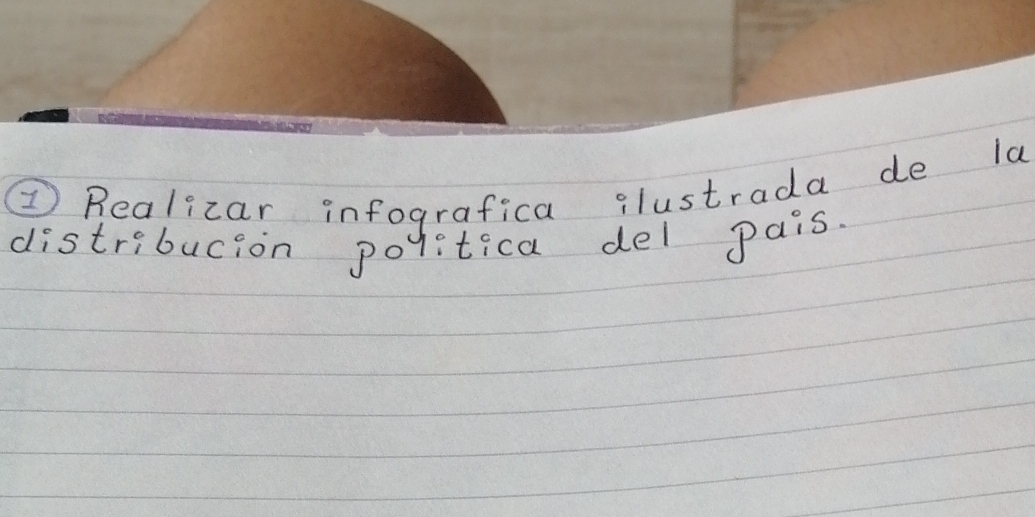 1 Realizar infografica ilustrada de la
distribución política del país.